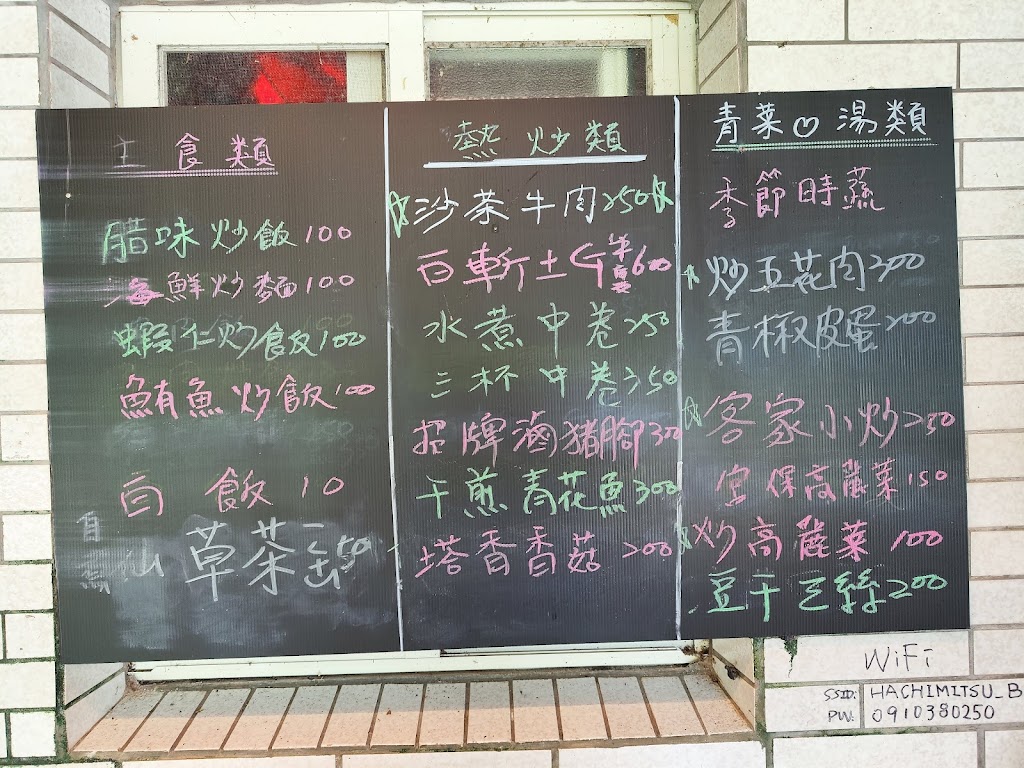 主食類
腊味炒飯100
海鮮炒麵100
蝦仁炒飯100
鮪魚炒飯100
白飯10
自煮
仙草茶 50
熱炒類
沙茶牛肉250
白斬土G半隻600
水煮中卷250
三杯中卷250
招牌滷豬腳300
干煎青花魚300
塔香香菇200
青菜♡湯類
季節時蔬
炒五花肉200
青椒皮蛋200
客家小炒250
宮保高麗菜150
炒高麗菜100
豆干三絲200
WiFi
SSID: HACHIMITSU_B
PW: 0910380250